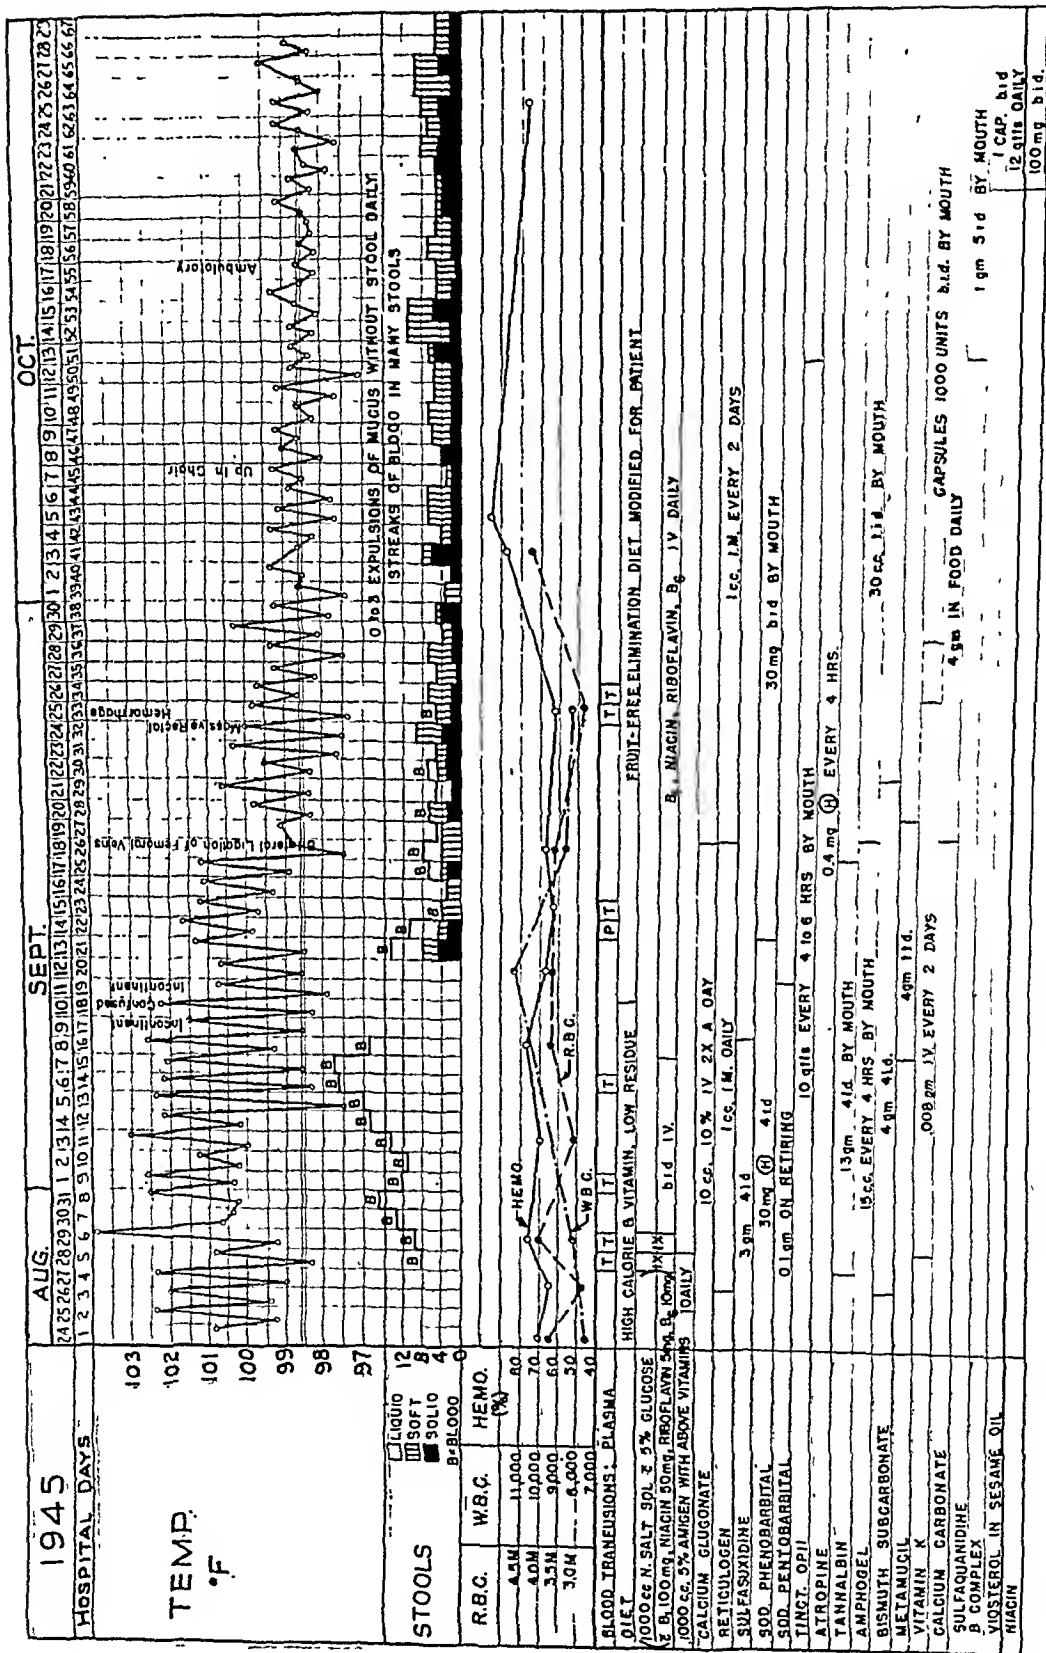 1945
AUG.
SEPT.
OCT.
24 25 26 27 28 29 30 31 1 2 3 4 5 6 7 8 9 10 11 12 13 14 15 16 17 18 19 20 21 22 23 24 25 26 27 28 29 30 1 2 3 4 5 6 7 8 9 10 11 12 13 14 15 16 17 18 19 20 21 22 23 24 25 26 27 28 29
HOSPITAL DAYS
1 2 3 4 5 6 7 8 9 10 11 12 13 14 15 16 17 18 19 20 21 22 23 24 25 26 27 28 29 30 31 32 33 34 35 36 37 38 39 40 41 42 43 44 45 46 47 48 49 50 51 52 53 54 55 55 56 57 58 59 60 61 62 63 64 65 66 67
TEMP.
°F
103
102
101
100
99
98
97
Incontinent
Confused
Incontinent
Ligation of Femoral Veins
Massive Racial
Hemorrhage
Up In Chair
Ambulatory
STOOLS
LIQUID
SOFT
SOLID
B=BLOOD
12
8
4
0
0 to 3 EXPULSIONS OF MUCUS WITHOUT STOOL DAILY
STREAKS OF BLOOD IN MANY STOOLS
R.B.C. W.B.C. HEMO. (%)
4.5M 11,000 80
4.0M 10,000 70
3.5M 9,000 60
3.0M 8,000 50
7,000 40
HEMO.
W.B.C.
R.B.C.
BLOOD TRANFUSIONS: PLASMA
T T T T P T T T
DIET
HIGH CALORIE & VITAMIN, LOW RESIDUE
FRUIT-FREE ELIMINATION DIET MODIFIED FOR PATIENT
1000 cc N. SALT SOL c̄ 5% GLUCOSE
c̄ B, 100mg, NIACIN 50mg, RIBOFLAVIN 5mg, B6 10mg
1X 1X
bid IV.
NIACIN, RIBOFLAVIN, B6 IV DAILY
1000 cc, 5% AMIGEN WITH ABOVE VITAMINS
DAILY
CALCIUM GLUGONATE
10 cc. 10% IV 2X A DAY
RETICULOGEN
1 cc. I.M. DAILY
1 c.c. I.M. EVERY 2 DAYS
SULFASUXIDINE
3 gm 4id
SOD. PHENOBARBITAL
30mg (H) 4id
30 mg bid BY MOUTH
SOD. PENTOBARBITAL
0.1 gm ON RETIRING
TINCT. OPII
10 gtts EVERY 4 to 6 HRS BY MOUTH
ATROPINE
0.4 mg (H) EVERY 4 HRS.
TANNALBIN
13gm 4id BY MOUTH
AMPHOGEL
15 cc. EVERY 4 HRS BY MOUTH
30 cc. BY MOUTH
BISMUTH SUBCARBONATE
4 gm 4id.
METAMUCIL
4gm
VITAMIN K
.008 gm IV EVERY 2 DAYS
CAPSULES 1000 UNITS b.i.d. BY MOUTH
CALCIUM CARBONATE
4 gm IN FOOD DAILY
SULFAQUANIDINE
1 gm 5id BY MOUTH
B COMPLEX
1 CAP. bid
VIOSTEROL IN SESAME OIL
12 gtts DAILY
NIACIN
100 mg bid.